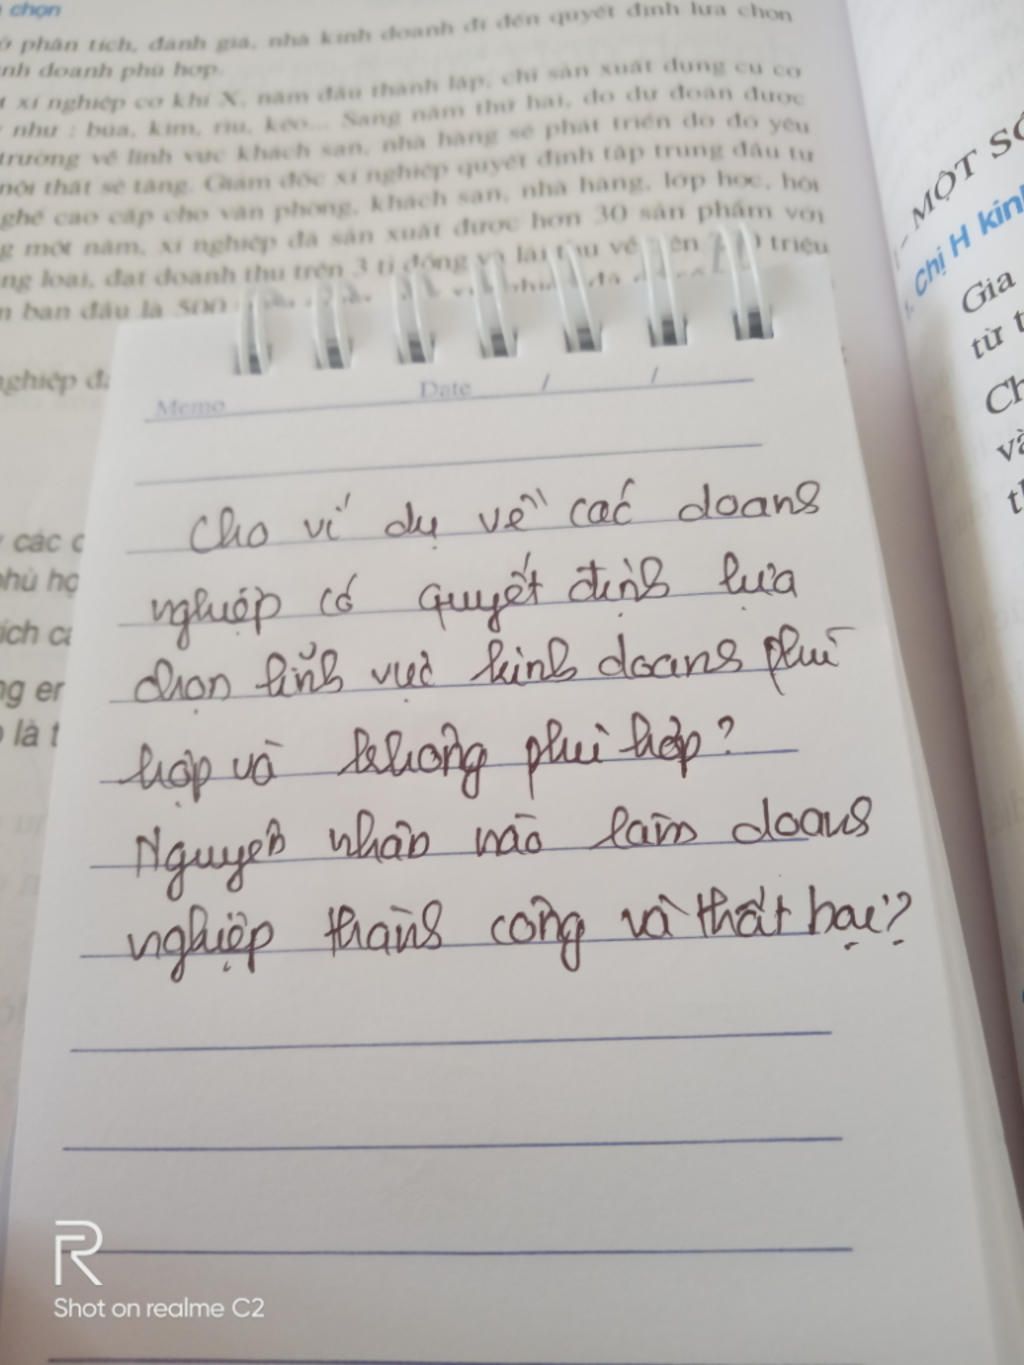 chọn
phân tích, đánh giá, nhà kinh doanh đi đến quyết định lựa chọn
doanh phù hợp.
xí nghiệp cơ khí X, năm đầu thành lập, chỉ sản xuất dụng cụ cơ
như : búa, kìm, rìu, kéo... Sang năm thứ hai, do dự đoán được
trường về lĩnh vực khách sạn, nhà hàng sẽ phát triển do đó yêu
nội thất sẽ tăng. Giám đốc xí nghiệp quyết định tập trung đầu tư
ghế cao cấp cho văn phòng, khách sạn, nhà hàng, lớp học, hội
một năm, xí nghiệp đã sản xuất được hơn 30 sản phẩm với
loại, đạt doanh thu trên 3 tỉ đồng và lãi thu về trên triệu
ban đầu là 500
Memo Date / /
Cho ví dụ về các doanh
nghiệp có quyết định lựa
chọn lĩnh vực kinh doanh phù
hợp và không phù hợp?
Nguyên nhân nào làm doanh
nghiệp thành công và thất bại?
các
phù
là
MỘT SỐ
1. Chị H kinh
Gia
từ
R
Shot on realme C2